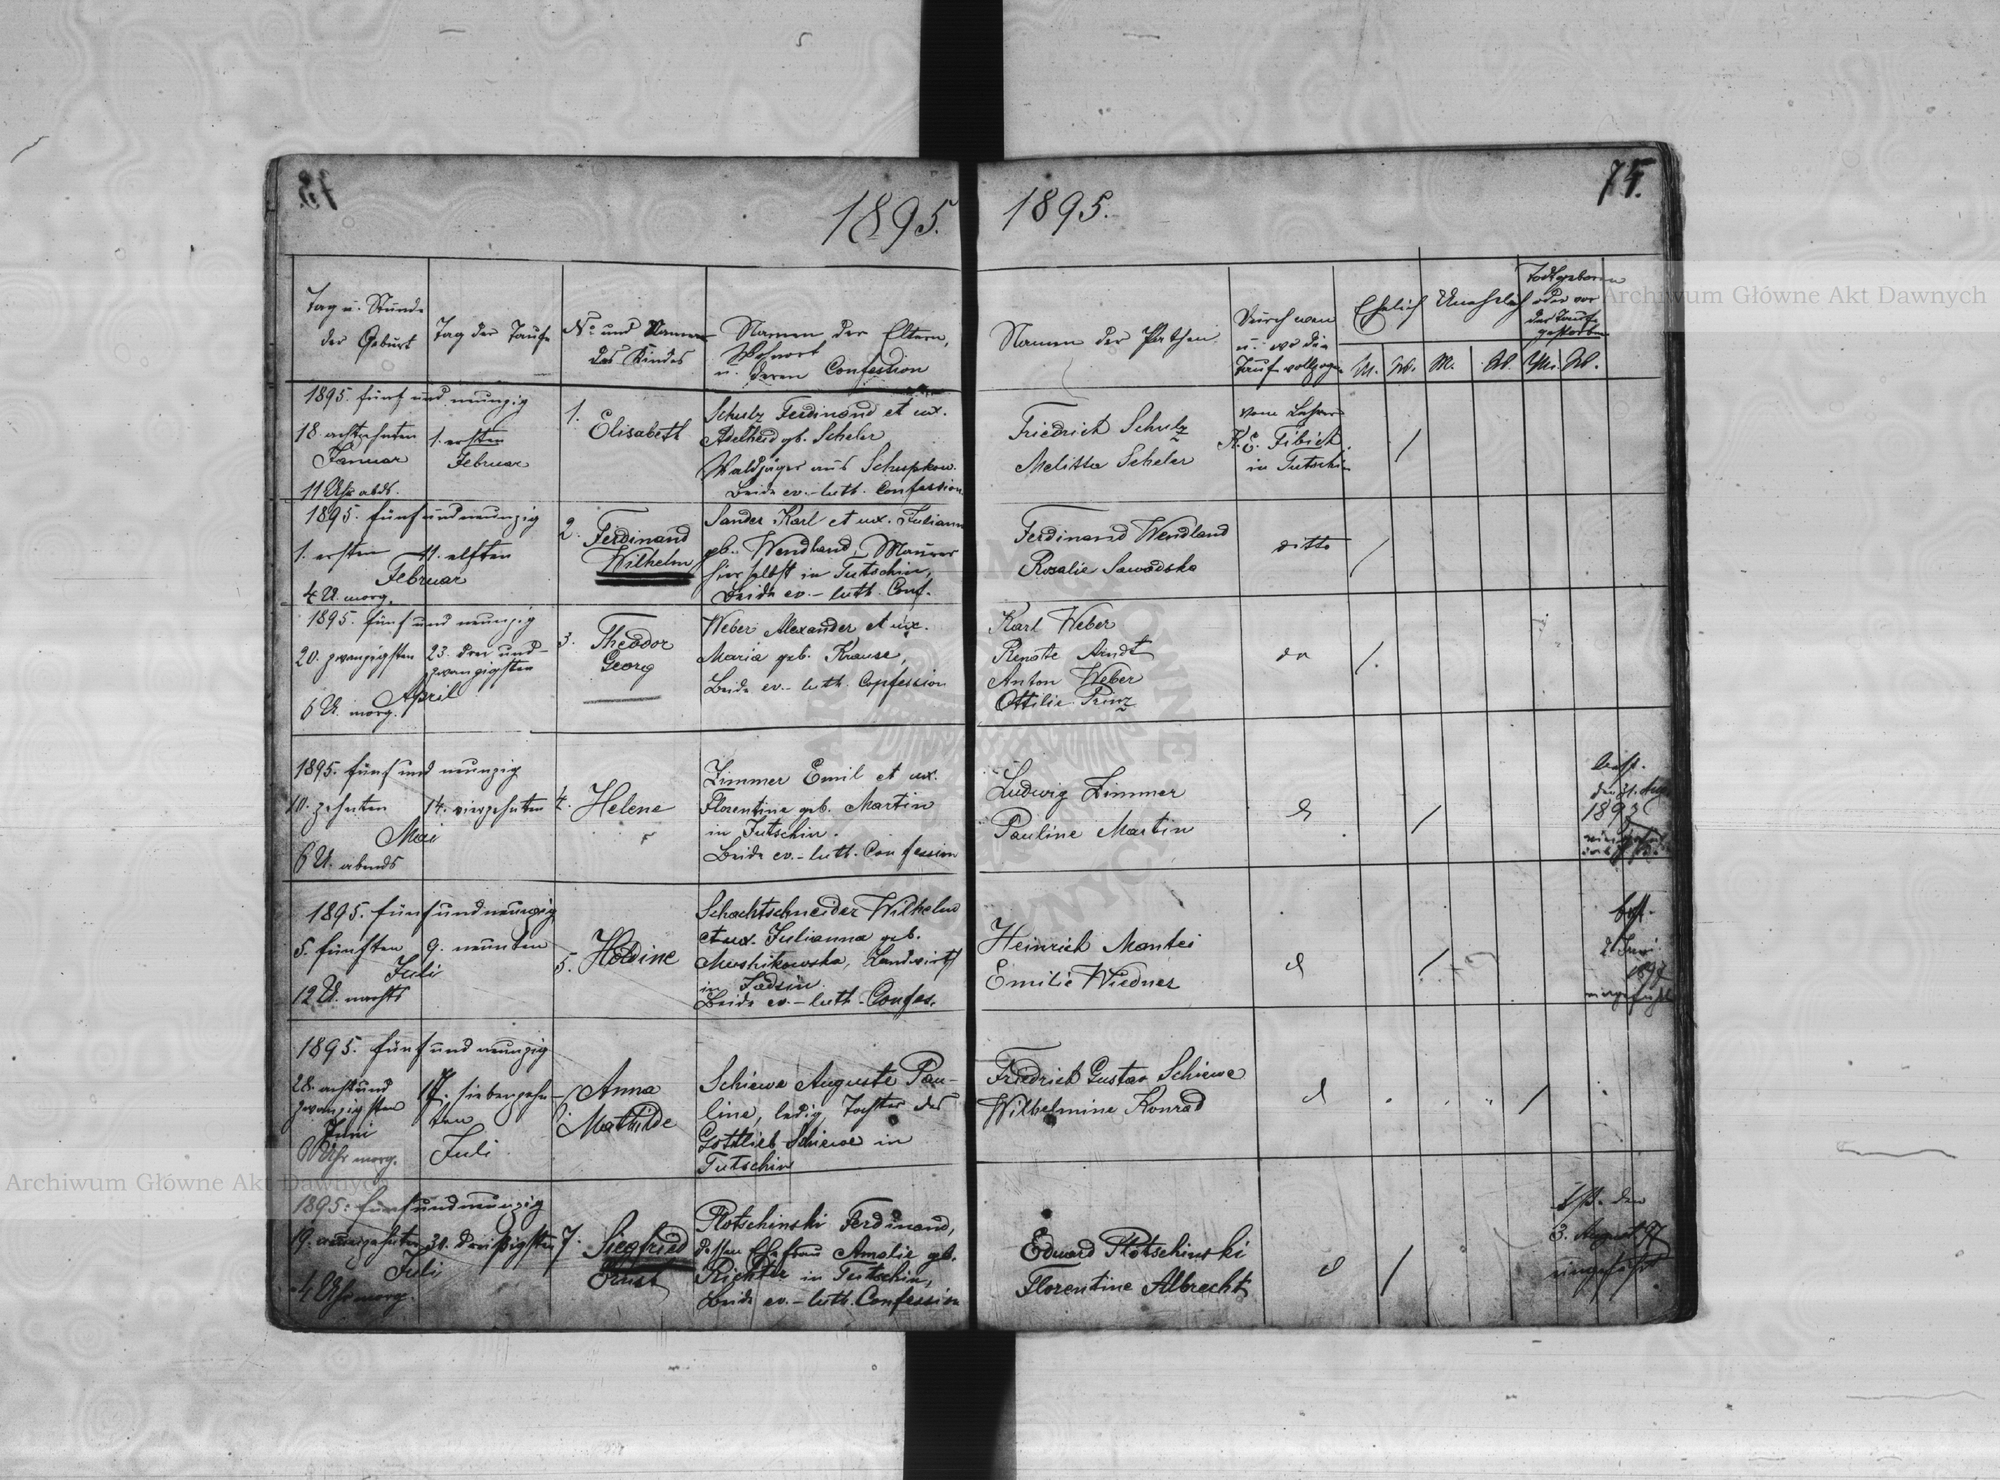 1895.
Tag u. Stunde
der Geburt
Tag der Taufe
No und Namen
des Kindes
Namen der Eltern,
Wohnort
u. deren Confession
1895. fünf und neunzig
18 achtzehnten
Januar
11 Uhr abds.
1. ersten
Februar
1. Elisabeth
Schulz Ferdinand et ux.
Adelheid gb. Scheler
Waldjäger aus
Beide ev.-luth. Confession
1895. fünfundneunzig
1. ersten
11. elften
Februar
4 U. morg.
2. Ferdinand
Wilhelm
Sander Karl et ux. Juliann
geb. Wendland, Maurer
hierselbst in Tutschin,
Beide ev.-luth. Conf.
1895. fünf und neunzig
20. zwanzigsten
23. drei und
zwanzigsten
April
6 U. morg.
3. Theodor
Georg
Weber Alexander et ux.
Maria geb. Krause,
Beide ev.-luth. Confession
1895. fünf und neunzig
10. zehnten
14. vierzehnten
Mai
6 U. abends
4. Helene
Zimmer Emil et ux.
Florentine geb. Martin
in Tutschin.
Beide ev.-luth. Confession
1895. fünfundneunzig
5. fünften
9. neunten
Juli
12 U. nachts
5. Holdine
Schachtschneider Wilhelm
et ux. Julianna geb.
Landwirth
in
Beide ev.-luth. Confes.
1895. fünf und neunzig
28. achtund
zwanzigsten
Juni
Uhr morg.
17. siebenzehn
ten
Juli
Anna
Mathilde
Schiewe Auguste Pau-
line, ledig, Tochter des
Gottlieb Schiewe in
Tutschin
1895. fünfundneunzig
19. neunzehnten
dreißigsten
Juli
4 Uhr morg.
7. Siegfried
Ernst
Plotschinski Ferdinand,
dessen Ehefrau Amalie gb.
Richter in Tutschin,
Beide ev.-luth. Confession
1895.
75.
Namen der Pathen
Durch wen
u. wo die
Taufe vollzogen
Ehelich
Unehelich
Todtgeboren
oder vor
der Taufe
gestorben
M. W. M. W. M. W.
Friedrich Schulz
Melitta Scheler
vom Lehrer
K. E. Fibich
in Tutschin
Ferdinand Wendland
Rosalie Sawadska
ditto
Karl Weber
Renate Arndt
Anton Weber
Ottilie Prinz
do
Ludwig Zimmer
Pauline Martin
d
Heinrich Mantei
Emilie Wiedner
d
Friedrich Gustav Schiewe
Wilhelmine Konrad
d
Eduard Plotschinski
Florentine Albrecht
d
3. August 97
Archiwum Główne Akt Dawnych
Archiwum Główne Akt Dawnych